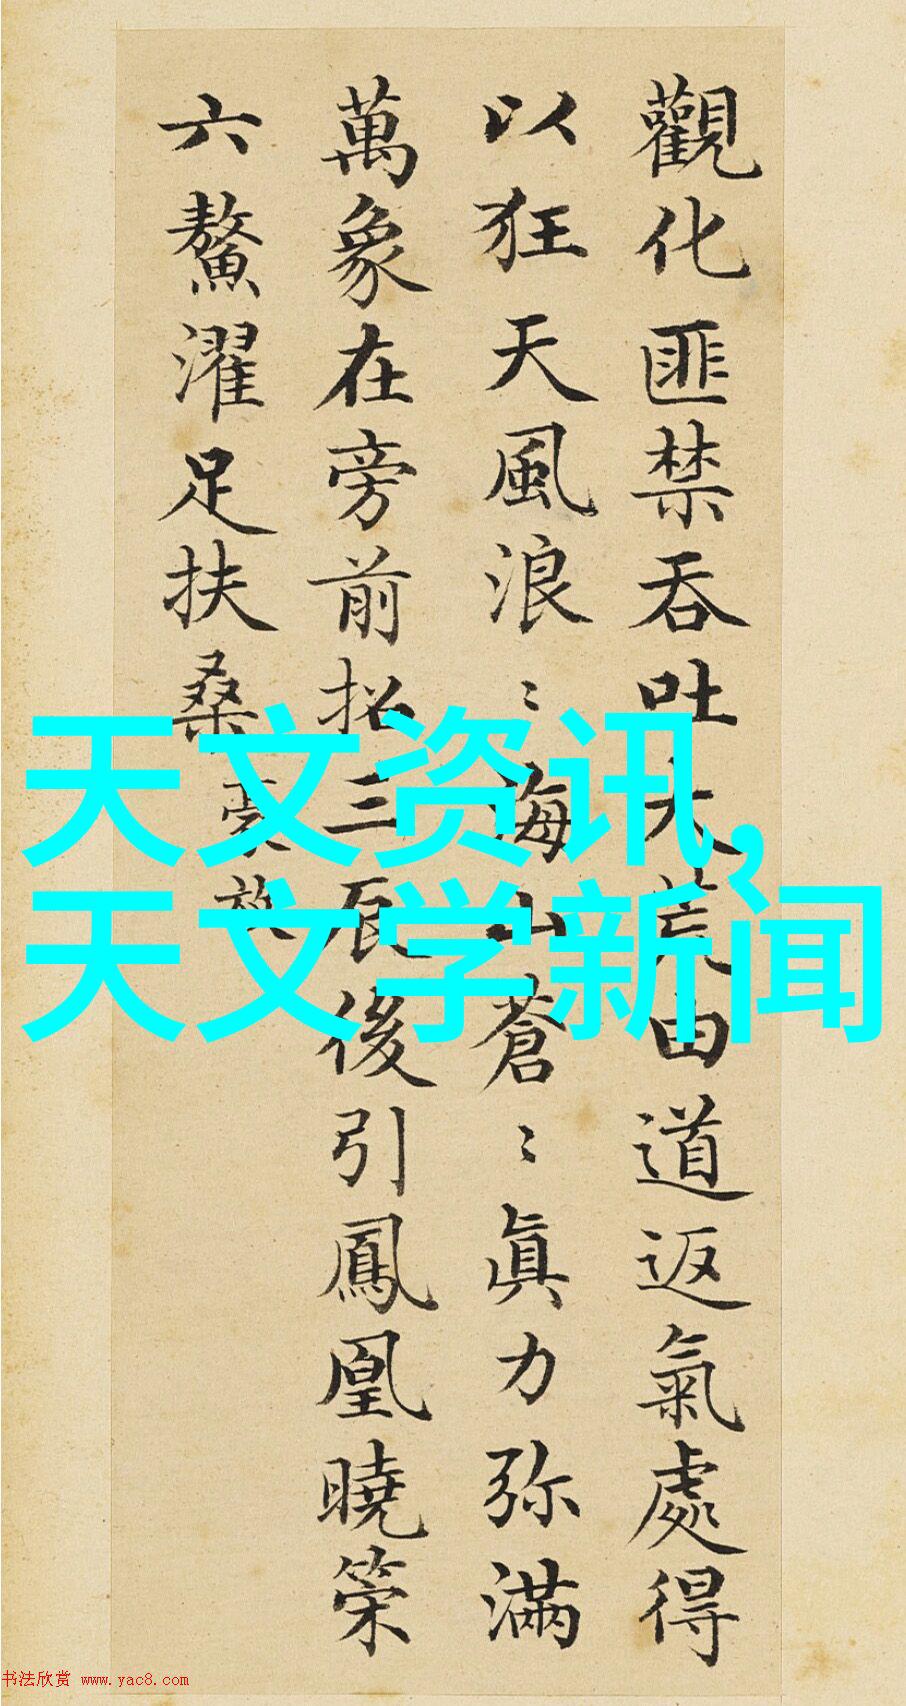 觀化匪禁吞吐大荒由道返氣處得
以狂天風浪〻海山蒼〻眞力弥滿
萬象在旁前招三辰後引鳳凰曉策
六鰲濯足扶桑
豪放
天文资讯,
天文学新闻
书法欣赏 www.yac8.com